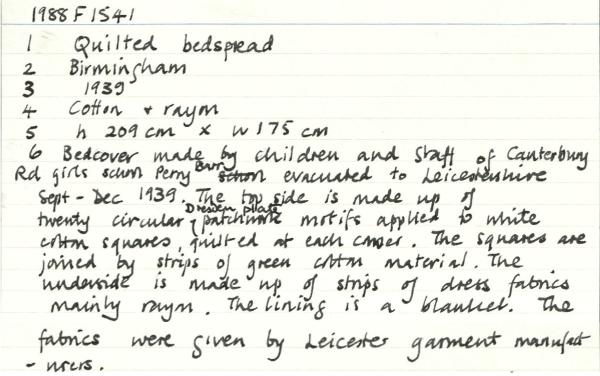 1988 F 1541
1 Quilted bedspread
2 Birmingham
3 1939
4 Cotton + rayon
5 h 209 cm x w 175 cm
6 Bedcover made by children and staff of Canterbury
Rd girls school Perry Barr evacuated to Leicestershire
Sept - Dec 1939. The top side is made up of
twenty circular Dresden plate patchwork motifs applied to white
cotton squares, quilted at each corner. The squares are
joined by strips of green cotton material. The
underside is made up of strips of dress fabrics
mainly rayon. The lining is a blanket. The
fabrics were given by Leicester garment manufact
- urers.